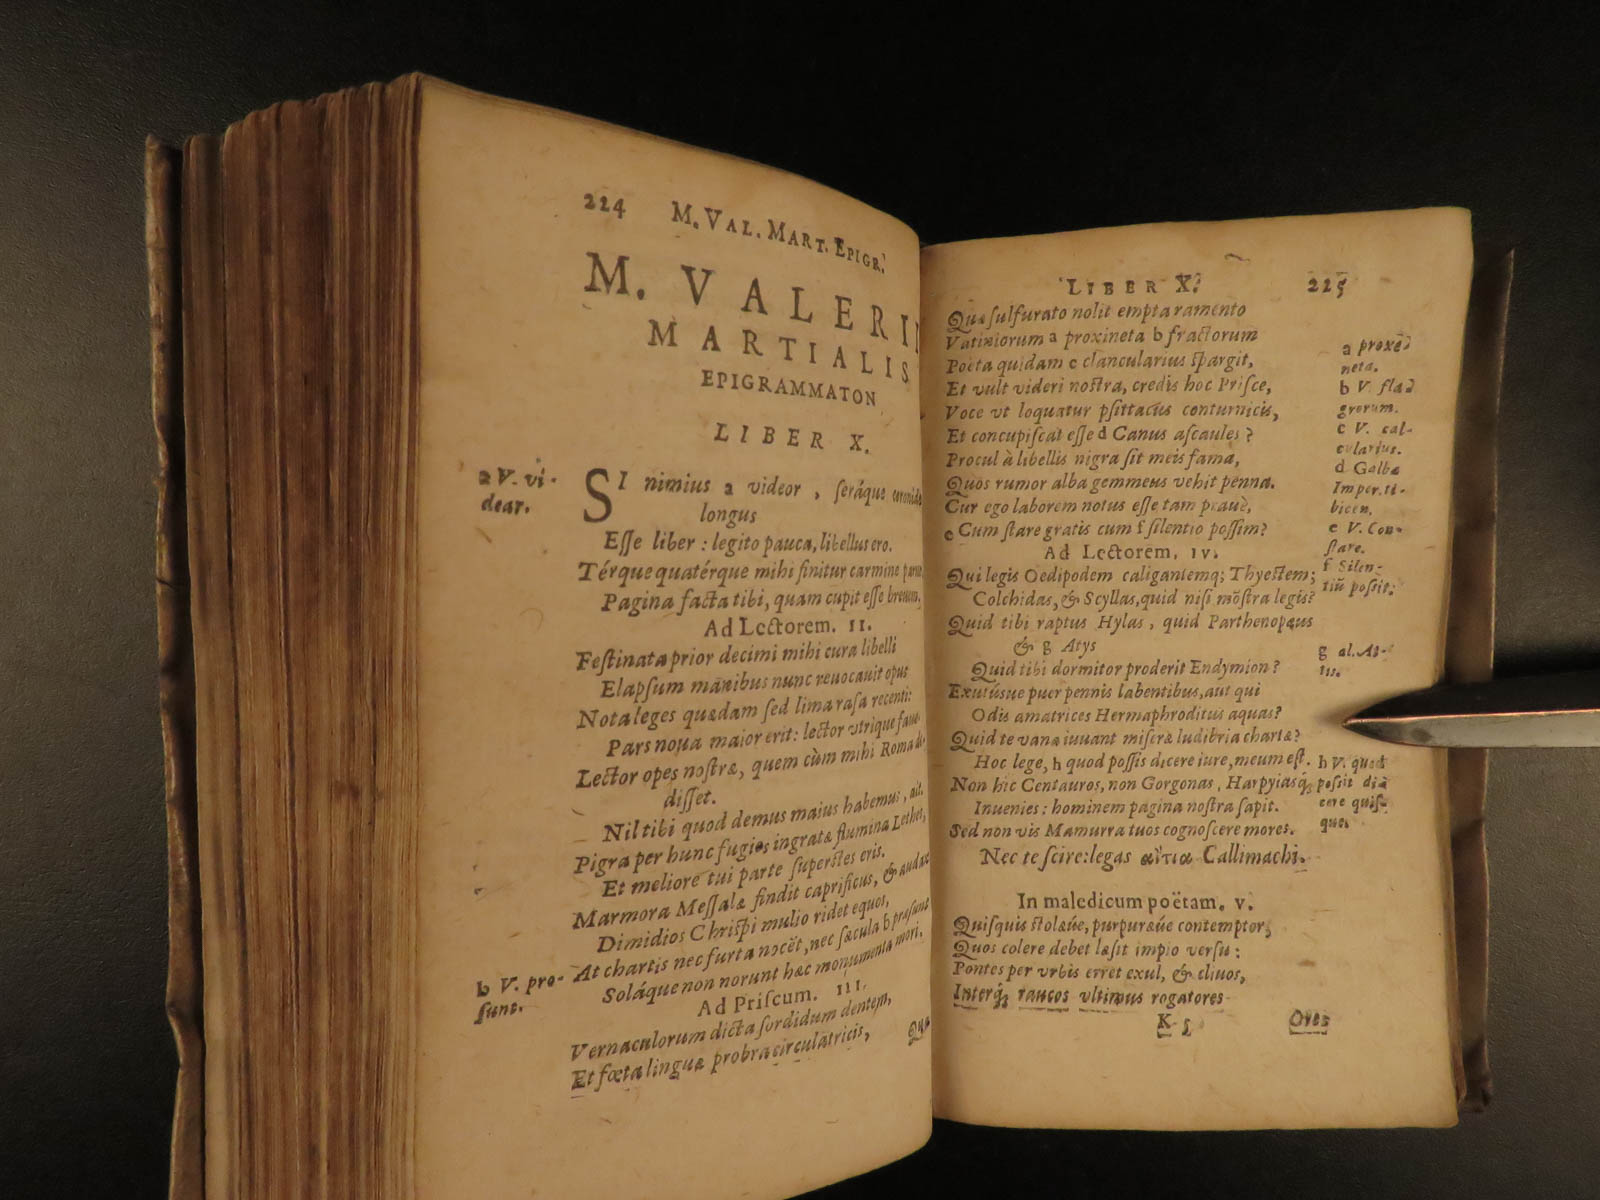 224 M. VAL. MART. EPIGR.
M. VALERII
MARTIALIS
EPIGRAMMATON
LIBER X.
a V. vi-
dear.
SI nimius a videor, seráque coronide
longus
Esse liber: legito pauca, libellus ero.
Térque quatérque mihi finitur carmine paruo
Pagina facta tibi, quam cupit esse breuem.
Ad Lectorem. II.
Festinata prior decimi mihi cura libelli
Elapsum manibus nunc reuocauit opus
Nota leges quædam sed lima rasa recenti:
Pars noua maior erit: lector vtrique faue.
Lector opes nostræ, quem cùm mihi Roma de-
disset.
Nil tibi quod demus maius habemus, ait.
Pigra per hunc fugies ingratæ flumina Lethes,
Et meliore tui parte superstes eris.
Marmora Messalæ findit caprificus, & audax
Dimidios Chrispi mulio ridet equos,
At chartis nec furta nocēt, nec sæcula b præsunt
Soláque non norunt hæc monumenta mori.
b V. pro-
sunt.
Ad Priscum. III.
Vernaculorum dicta sordidum dentem,
Et fœta linguæ probra circulatricis,
Quæ
LIBER X. 225
Quæ sulfurato nolit empta ramento
Vatiniorum a proxineta b fractorum
Poëta quidam c clancularius spargit,
Et vult videri nostra, credis hoc Prisce,
Voce vt loquatur psittacus conturnicis,
Et concupiscat esse d Canus ascaules?
Procul à libellis nigra sit meis fama,
Quos rumor alba gemmeus vehit penna.
Cur ego laborem notus esse tam prauè,
e Cum stare gratis cum f silentio possim?
a proxe-
neta.
b V. fla-
grorum.
c V. cal-
cularius.
d Galbæ
Imper. ti-
bicen.
e V. Con-
stare.
f Silen-
tiū possit.
Ad Lectorem. IV.
Qui legis Oedipodem caligantemq; Thyestem;
Colchidas, & Scyllas, quid nisi mōstra legis?
Quid tibi raptus Hylas, quid Parthenopæus
& g Atys
Quid tibi dormitor proderit Endymion?
Exutúsue puer pennis labentibus, aut qui
Odis amatrices Hermaphroditus aquas?
Quid te vanæ iuuant miseræ ludibria chartæ?
Hoc lege, h quod possis dicere iure, meum est.
Non hic Centauros, non Gorgonas, Harpyiasq;
Inuenies: hominem pagina nostra sapit.
Sed non vis Mamurra tuos cognoscere mores.
Nec te scire: legas αἴτια Callimachi.
g al. At-
tis.
h V. quod
possit di-
cere quis-
que.
In maledicum poëtam. V.
Quisquis stolæúe, purpuræúe contemptor,
Quos colere debet læsit impio versu:
Pontes per vrbis erret exul, & cliuos,
Interq́; raucos vltimus rogatores
K 5 Ores